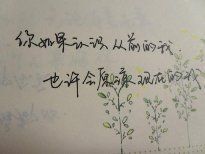 你如果认识从前的我
也许会原谅现在的我